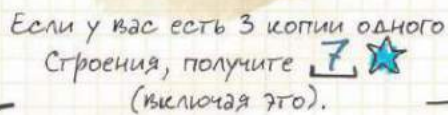 Если у вас есть 3 копии одного
строения, получите 7
(включая это).